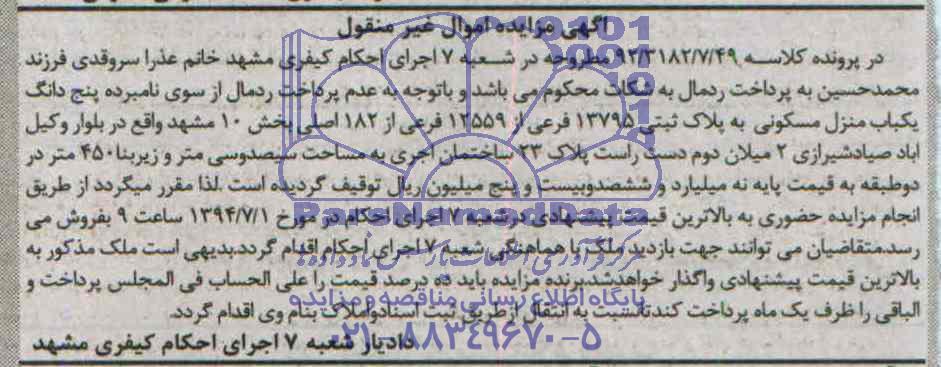 آگهی مزایده اموال غیر منقول
در پرونده کلاسه ۹۲/۳۱۸۲/۷/۴۹ مطروحه در شعبه ۷ اجرای احکام کیفری مشهد خانم عذرا سروقدی فرزند
محمدحسین به پرداخت ردمال به شکات محکوم می باشد و باتوجه به عدم پرداخت ردمال از سوی نامبرده پنج دانگ
یکباب منزل مسکونی به پلاک ثبتی ۱۳۷۹۵ فرعی از ۱۲۵۵۹ فرعی از ۱۸۲ اصلی بخش ۱۰ مشهد واقع در بلوار وکیل
اباد صیادشیرازی ۲ میلان دوم دست راست پلاک ۲۳ ساختمان اجری به مساحت سیصدوسی متر و زیربنا۴۵۰ متر در
دوطبقه به قیمت پایه نه میلیارد و ششصدوبیست و پنج میلیون ریال توقیف گردیده است .لذا مقرر میگردد از طریق
انجام مزایده حضوری به بالاترین قیمت پیشنهادی درشعبه ۷ اجرای احکام در مورخ ۱۳۹۴/۷/۱ ساعت ۹ بفروش می
رسد.متقاضیان می توانند جهت بازدید ملک با هماهنگی شعبه ۷ اجرای احکام اقدام گردد.بدیهی است ملک مذکور به
بالاترین قیمت پیشنهادی واگذار خواهدشد.برنده مزایده باید ده درصد قیمت را علی الحساب فی المجلس پرداخت و
الباقی را ظرف یک ماه پرداخت کندتانسبت به انتقال ازطریق ثبت اسنادواملاک بنام وی اقدام گردد.
دادیار شعبه ۷ اجرای احکام کیفری مشهد
ParsNamadData
پایگاه اطلاع رسانی مناقصه و مزایده
۰۲۱-۸۸۳۴۹۶۷۰-۵